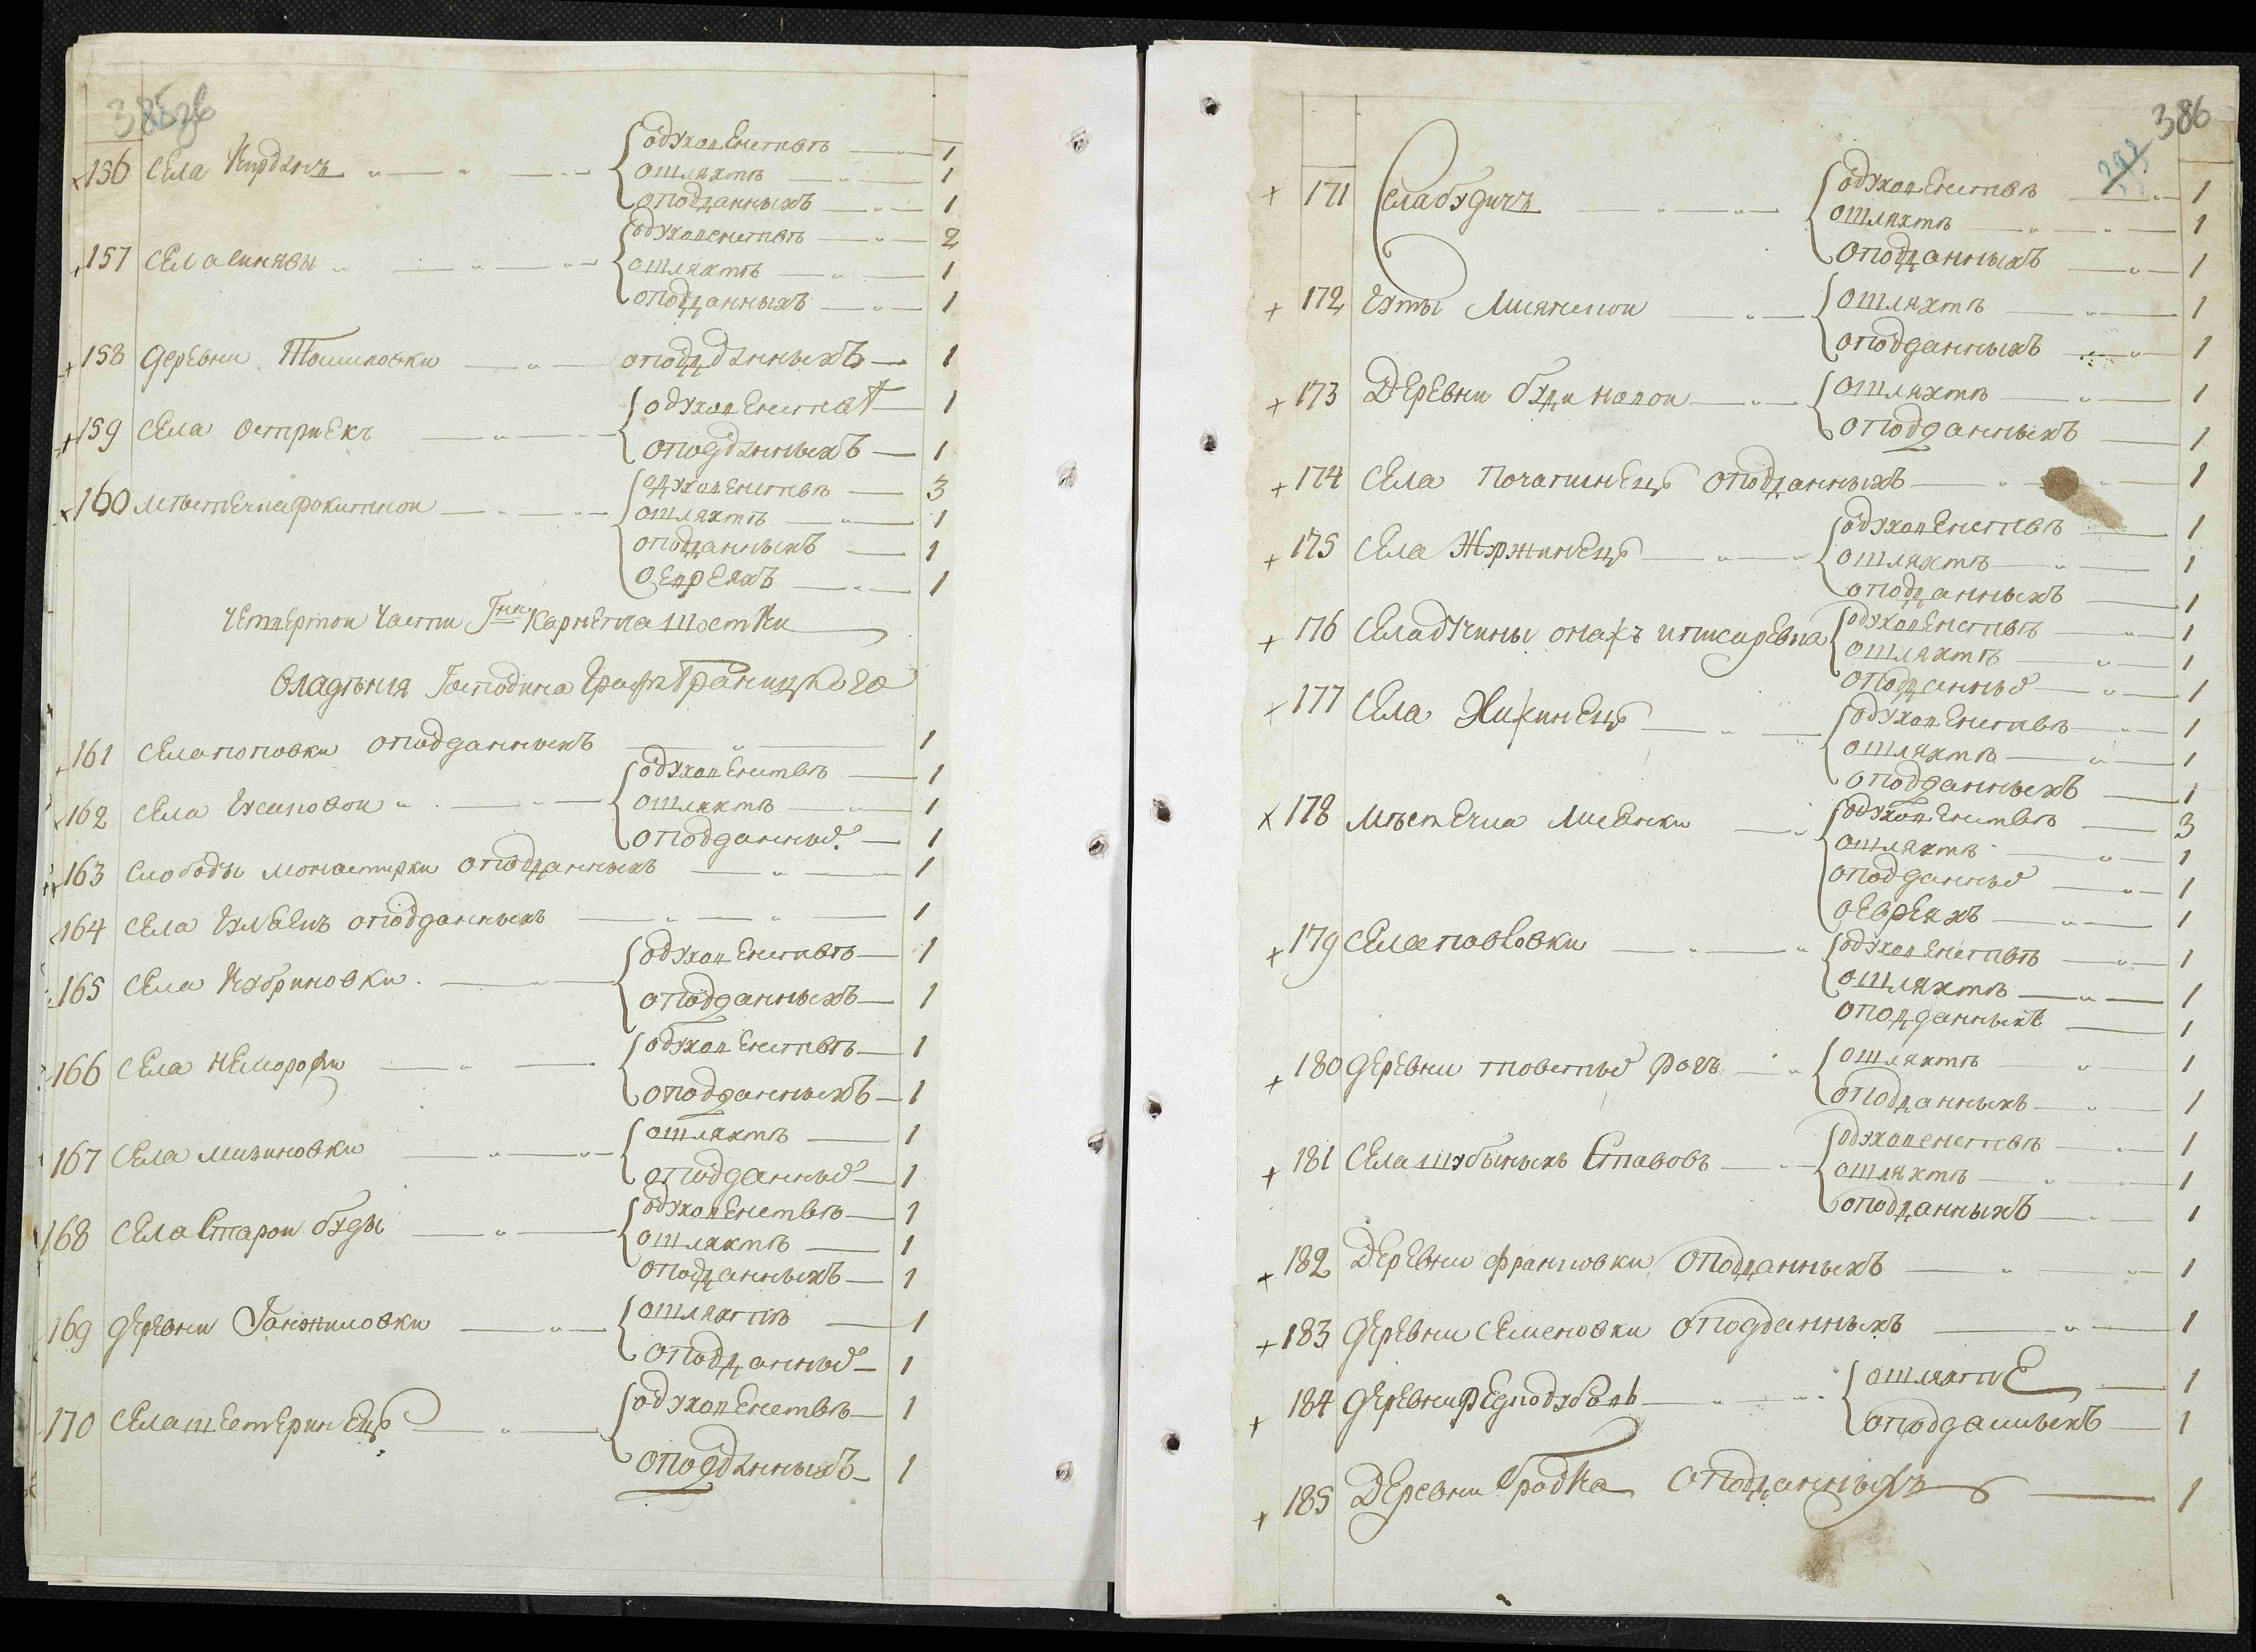 385зв
156 Села Кирданъ одуховенствѣ 1
ошляхтѣ 1
оподданныхъ 1
157 Села синявы одуховенствѣ 2
ошляхтѣ 1
оподданныхъ 1
158 деревни Томиловки оподданныхъ 1
159 Села острыекъ одуховенствѣ 1
оподданныхъ 1
160 мѣстечка рокитной одуховенствѣ 3
ошляхтѣ 1
оподданныхъ 1
оевреяхъ 1
четвертой Части Гна Карнета шостки
Владѣния Господина Графа Браницкого
161 Села поповки оподданныхъ 1
162 Села одуховенствѣ 1
ошляхтѣ 1
оподданныхъ 1
163 Слободы монастирки оподданныхъ 1
164 Села оподданныхъ 1
165 Села Кобриновки одуховенствѣ 1
оподданныхъ 1
166 Села Неморожи одуховенствѣ 1
оподданныхъ 1
167 Села мизиновки ошляхтѣ 1
оподданныхъ 1
168 Села Старой буды одуховенствѣ 1
ошляхтѣ 1
оподданныхъ 1
169 деревни Ганжиловки ошляхтѣ 1
оподданныхъ 1
170 Села шестеринецъ одуховенствѣ 1
оподданныхъ 1
386
293
171 Села будичъ одуховенствѣ 1
ошляхтѣ 1
оподданныхъ 1
172 Гуты Лисянской ошляхтѣ 1
оподданныхъ 1
173 Деревни буди ошляхтѣ 1
оподданныхъ 1
174 Села Почапинецъ оподданныхъ 1
175 Села Журжинецъ одуховенствѣ 1
ошляхтѣ 1
оподданныхъ 1
176 Села дучины онажъ иписаревка одуховенствѣ 1
ошляхтѣ 1
оподданныхъ 1
177 Села Хижинецъ одуховенствѣ 1
ошляхтѣ 1
оподданныхъ 1
178 мѣстечка Лисянки одуховенствѣ 3
ошляхтѣ 1
оподданныхъ 1
оевреяхъ 1
179 Села павловки одуховенствѣ 1
ошляхтѣ 1
оподданныхъ 1
180 деревни товстыхъ рогъ ошляхтѣ 1
оподданныхъ 1
181 Села шубыныхъ Ставовъ одуховенствѣ 1
ошляхтѣ 1
оподданныхъ 1
182 Деревни франковки оподданныхъ 1
183 деревни Семеновки оподданныхъ 1
184 деревни редкодуба ошляхте 1
оподданныхъ 1
185 Деревни бродка оподданныхъ 1